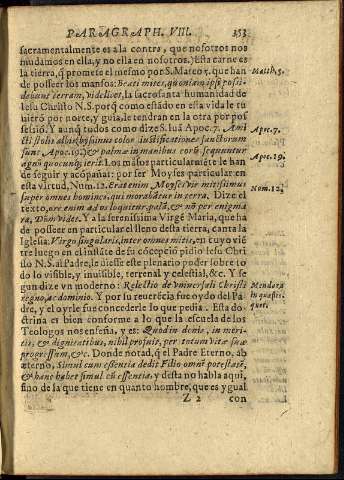 PARAGRAPH. VIII. 353
sacramentalmente es a la contra, que nosotros nos
mudamos en ella, y no ella en nosotros.) Esta carne es
la tierra, q̃ promete el mesmo por S. Mateo 5. que han Matth. 5.
de posseer los mansos: Beati mites, quoniam ipsi possi-
debunt terram, videlicet, la sacrosanta humanidad de
Iesu Christo N. S. porq̃ como estãdo en esta vida le tu
uierõ por norte, y guia, le tendran en la otra por pos
sessiõ. Y aunq̃ todos como dize S. Iuã Apoc. 7. Ami Apoc. 7.
cti stolis albis, bisinus color iustificationes sanctorum
sunt, Apoc. 19. et palmæ in manibus eorũ sequuntur Apoc. 19.
agnũ quocunq; ierit. Los mãsos particularmẽte le han
de seguir y acõpañar: por ser Moyses particular en
esta virtud, Num. 12. erat enim Moyses vir mitissimus Num. 12.
super omnes homines, qui morabãtur in terra. Dize el
texto, ore enim ad os loquitur, palã, et nõ per enigma
ta, Dũm videt. Y a la serenissima Virgẽ Maria, que ha
de posseer en particular el lleno desta tierra, canta la
Iglesia: Virgo singularis, inter omnes mitis, en cuyo viẽ
tre luego en el instãte de su cõcepciõ pidio Iesu Chri
sto N. S. al Padre, le diesse este plenario poder sobre to
do lo visible, y inuisible, terrenal y celestial, &c. Y se
gun dize vn moderno: Relectio de vniuersali Christi Mendoza
regno, ac dominio. Y por su reuerẽcia fue oydo del Pa in quæsti-
dre, y el oyrle fue concederle lo que pedia. Esta do-
ctrina es bien conforme a lo que la escuela de los
Teologos nos enseña, y es: Quod in donis, in meri-
tis, et dignitatibus, nihil profuit, per totum vitæ suæ
progressum, &c. Donde notad, q̃ el Padre Eterno, ab
æterno, Simul cum essentia dedit Filio omnẽ potestatẽ,
et hanc habet simul cũ essentia, y desta no habla aqui,
sino de la que tiene en quanto hombre, que es ygual
Z 2 con